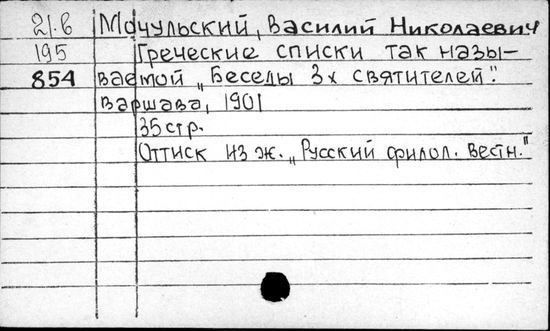 21.б Мочульский, Василий Николаевич
195 Греческие списки так назы-
854 ваемой „Беседы 3х святителей".
Варшава, 1901
35 стр.
Оттиск из ж. „Русский филол. вестн."